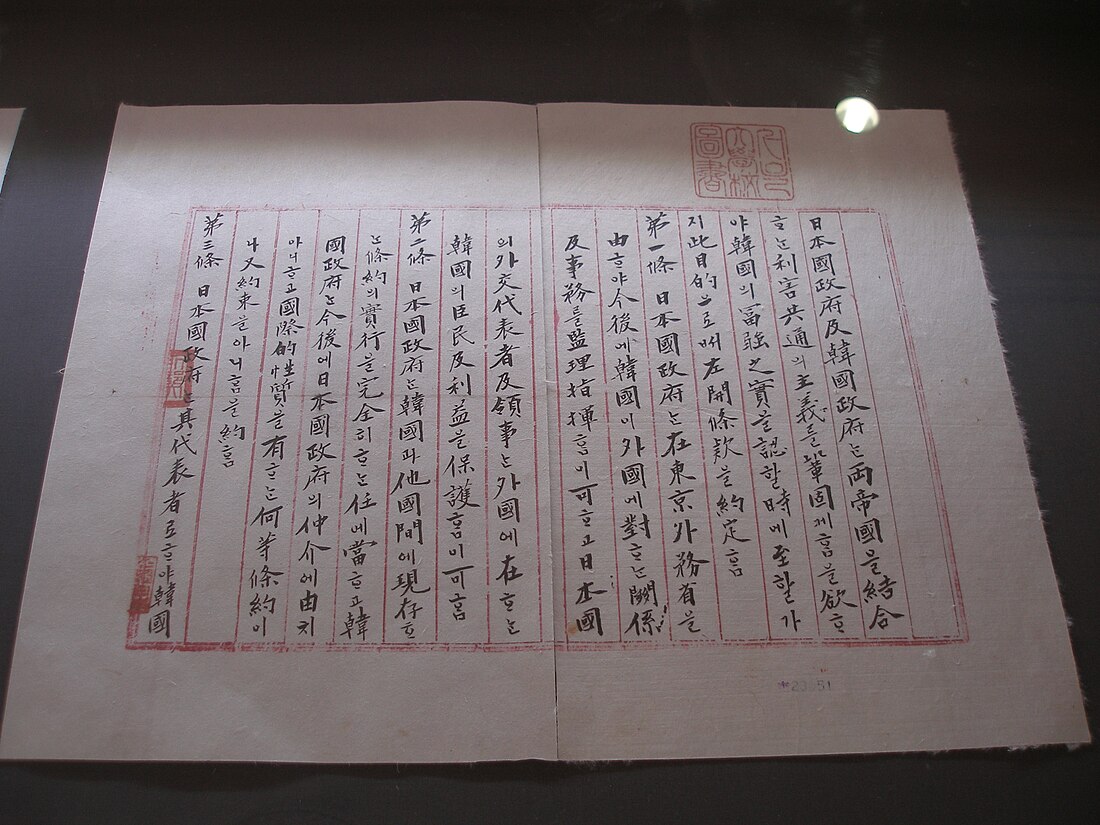 서울大學校圖書
日本國政府及韓國政府는両帝國을結合
ᄒᆞ는利害共通의主義를鞏固케ᄒᆞᆷ을欲ᄒᆞ
야韓國의冨强之實을認할時에至할가
지此目的으로써左開條款을約定ᄒᆞᆷ
第一條 日本國政府는在東京外務省을
由ᄒᆞ야今後에韓國이外國에對ᄒᆞ는關係
及事務를監理指揮ᄒᆞᆷ이可ᄒᆞ고日本國
의外交代表者及領事는外國에在ᄒᆞ는
韓國의臣民及利益을保護ᄒᆞᆷ이可ᄒᆞᆷ
第二條 日本國政府는韓國과他國間에現存ᄒᆞ
는條約의實行을完全히ᄒᆞ는任에當ᄒᆞ고韓
國政府는今後에日本國政府의仲介에由치
아니ᄒᆞ고國際的性質을有ᄒᆞ는何等條約이
나又約束을아니ᄒᆞᆷ을約ᄒᆞᆷ
第三條 日本國政府는其代表者로ᄒᆞ야韓國